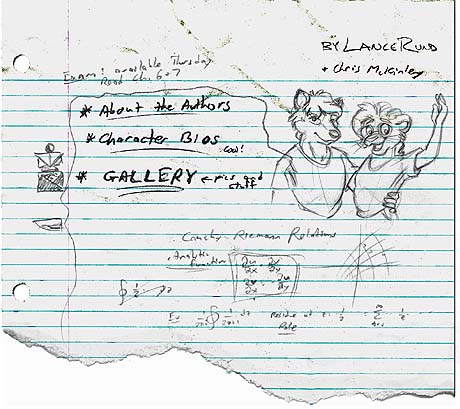 BY LANCE RUND
+ Chris McKinley
Exam: available Thursday
Read Ch. 6+7
* About the Authors
* Character Bios
Cool!
* GALLERY ← pics and stuff
Cauchy-Riemann Relations
Analytic Function
∂u/∂x = ∂v/∂y
Ex
Residue at z =
Pole